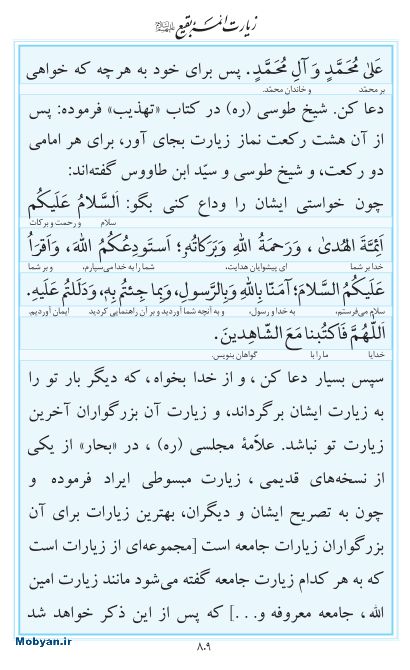 زیارت ائمه بقیع علیهم‌السلام
عَلیٰ مُحَمَّدٍ وَ آلِ مُحَمَّدٍ. پس برای خود به هرچه که خواهی
بر محمّد و خاندان محمّد.
دعا کن. شیخ طوسی (ره) در کتاب «تهذیب» فرموده: پس
از آن هشت رکعت نماز زیارت بجای آور، برای هر امامی
دو رکعت، و شیخ طوسی و سیّد ابن طاووس گفته‌اند:
چون خواستی ایشان را وداع کنی بگو: اَلسَّلامُ عَلَیکُم
سلام و رحمت و برکات
اَئِمَّةَ الهُدیٰ، وَرَحمَةُ اللهِ وَبَرَکاتُهُ؛ اَستَودِعُکُمُ اللهَ، وَاَقرَأُ
خدا بر شما ای پیشوایان هدایت، شما را به خدا می‌سپارم، و بر شما
عَلَیکُمُ السَّلامَ؛ آمَنّا بِاللهِ وَبِالرَّسولِ، وَبِما جِئتُم بِهِ، وَدَلَلتُم عَلَیهِ.
سلام می‌فرستم، به خدا و رسول، و به آنچه شما آوردید و بر آن راهنمایی کردید ایمان آوردیم.
اَللّٰهُمَّ فَاکتُبنا مَعَ الشّاهِدینَ.
خدایا ما را با گواهان بنویس.
سپس بسیار دعا کن، و از خدا بخواه، که دیگر بار تو را
به زیارت ایشان برگرداند، و زیارت آن بزرگواران آخرین
زیارت تو نباشد. علاّمهٔ مجلسی (ره)، در «بحار» از یکی
از نسخه‌های قدیمی، زیارت مبسوطی ایراد فرموده و
چون به تصریح ایشان و دیگران، بهترین زیارات برای آن
بزرگواران زیارات جامعه است [مجموعه‌ای از زیارات است
که به هر کدام زیارت جامعه گفته می‌شود مانند زیارت امین
الله، جامعه معروفه و...] که پس از این ذکر خواهد شد
۸۰۹
Mobyan.ir